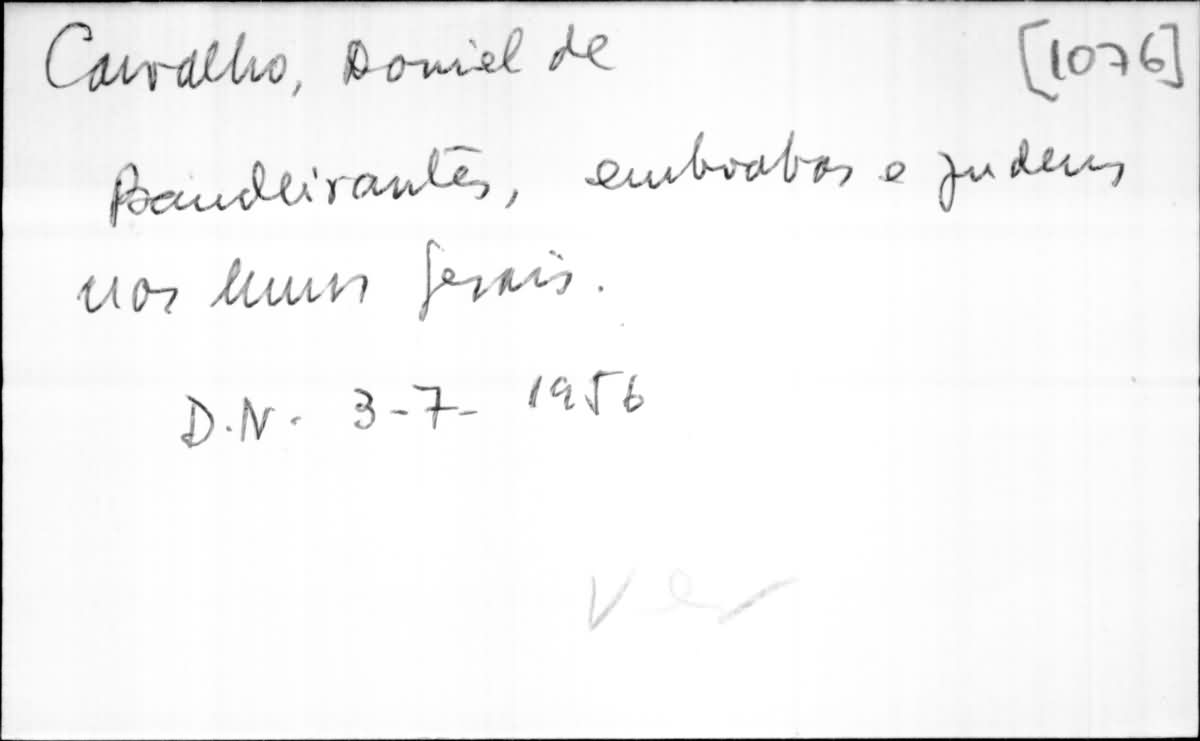 Carvalho, Daniel de [1076]
Bandeirantes, emboabas e judeus
nas Minas Gerais.
D.N. 3-7-1956
Ver